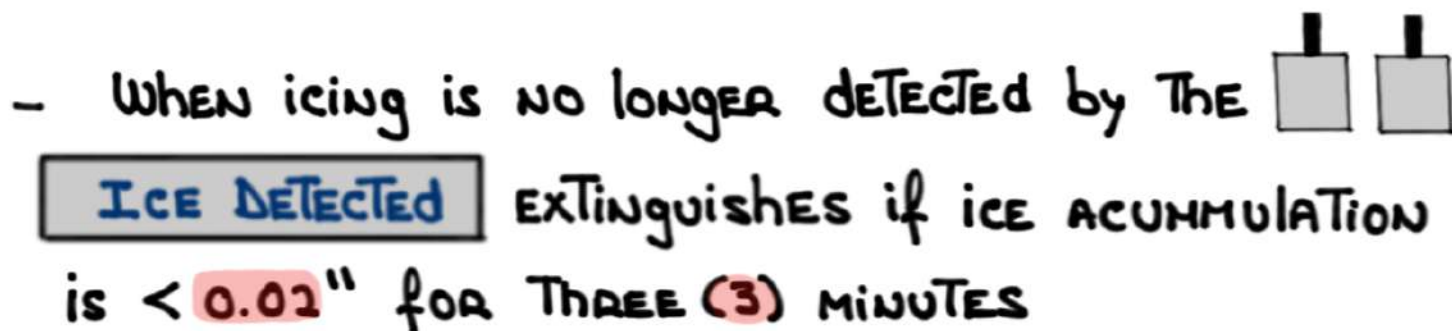 - When icing is no longer detected by the
ICE DETECTED extinguishes if ice acummulation
is < 0.02" for three (3) minutes